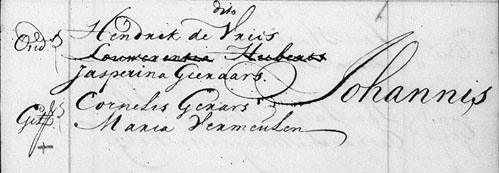 dito
Oud.s Hendrik de Vries
Lourerentia Huberts
Jasperina Geerdars.
Johannis
Cornelis Gerars
Get.s Maria Vermeulen